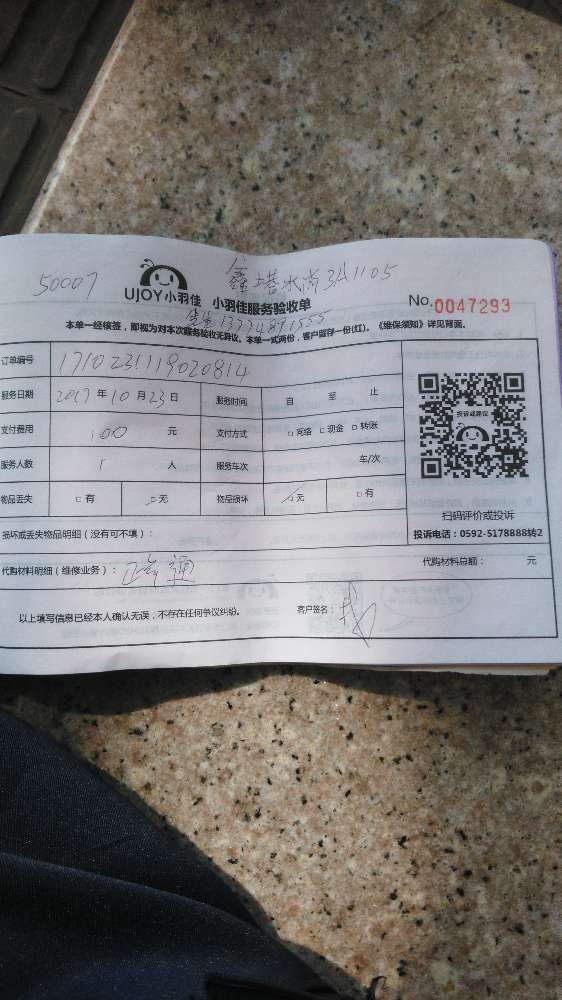 50007
鑫塔水尚3#1105
UJOY小羽佳 小羽佳服务验收单 No.0047293
本单一经核签，即视为对本次服务验收无异议。本单一式两份，客户留存一份(红)。《维保须知》详见背面。
订单编号 1710231119020814
服务日期 2017年10月23日 服务时间 自 至 止
支付费用 100 元 支付方式 □网络 □现金 □转账
服务人数 1 人 服务车次 车/次
物品丢失 □有 □无 物品损坏 □无 □有
投诉或建议
扫码评价或投诉
投诉电话：0592-5178888转2
损坏或丢失物品明细（没有可不填）：
代购材料明细（维修业务）： 代购材料总额： 元
以上填写信息已经本人确认无误，不存在任何争议纠纷。 客户签名：